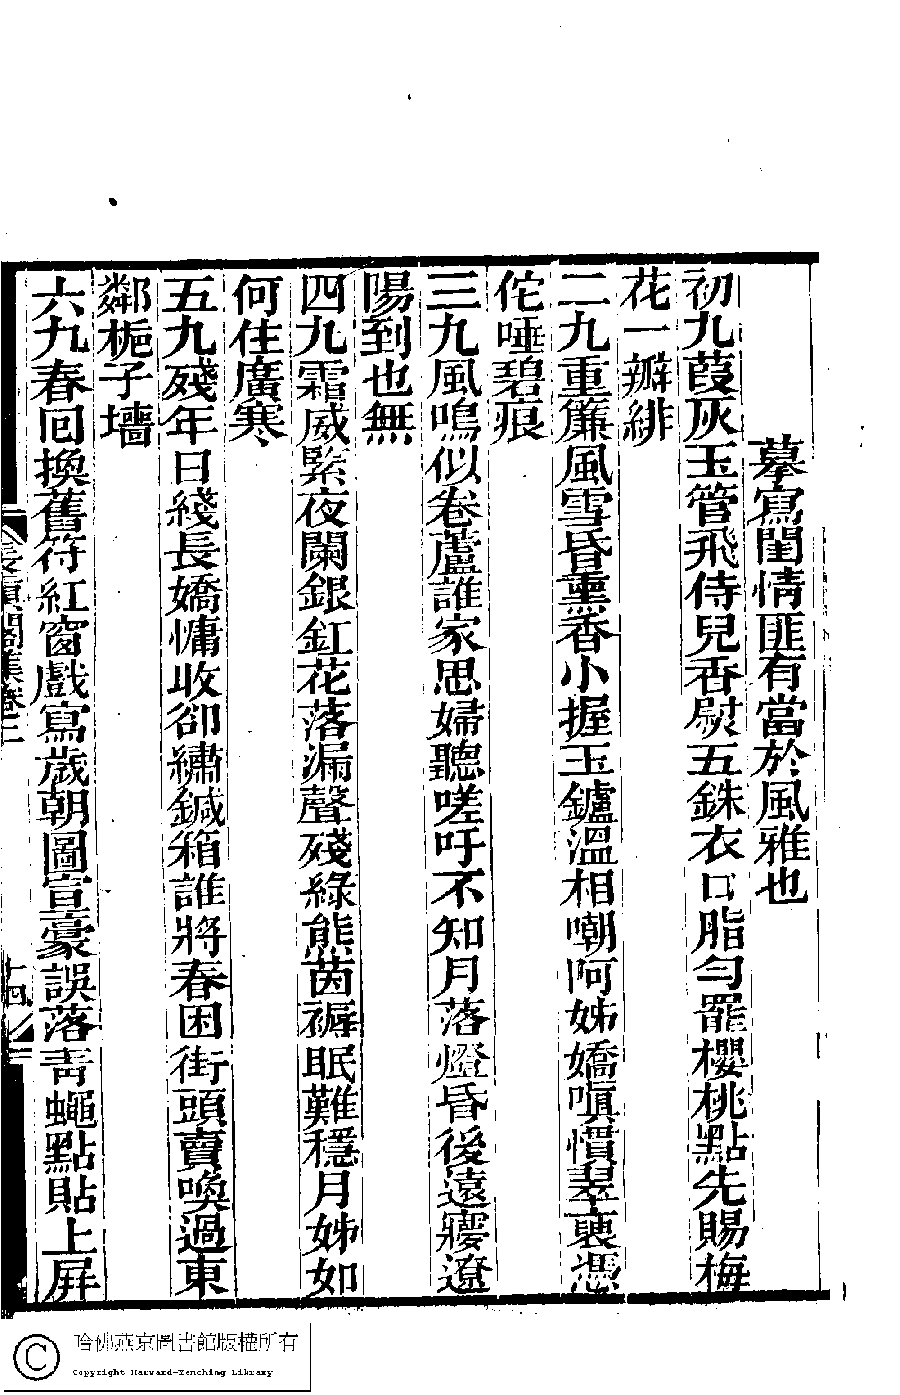 摹寫閨情匪有當於風雅也
初九葭灰玉管飛侍兒香熨五銖衣口脂勻罷櫻桃點先賜梅
花一瓣緋
二九重簾風雪昏熏香小握玉鑪溫相嘲阿姊嬌嗔慣翠裏憑
佗唾碧痕
三九風鳴似卷蘆誰家思婦聽嗟吁不知月落燈昏後遠寱遼
陽到也無
四九霜威緊夜闌銀釭花落漏聲殘綠熊茵褥眠難穩月姊如
何住廣寒
五九殘年日綫長嬌慵收卻繡鍼箱誰將春困街頭賣喚過東
鄰梔子墻
六九春回換舊符紅窗戲寫歲朝圖宣豪誤落青蠅點貼上屏
長真閣集卷三
十四
哈佛燕京圖書館版權所有
Copyright Harvard-Yenching Library